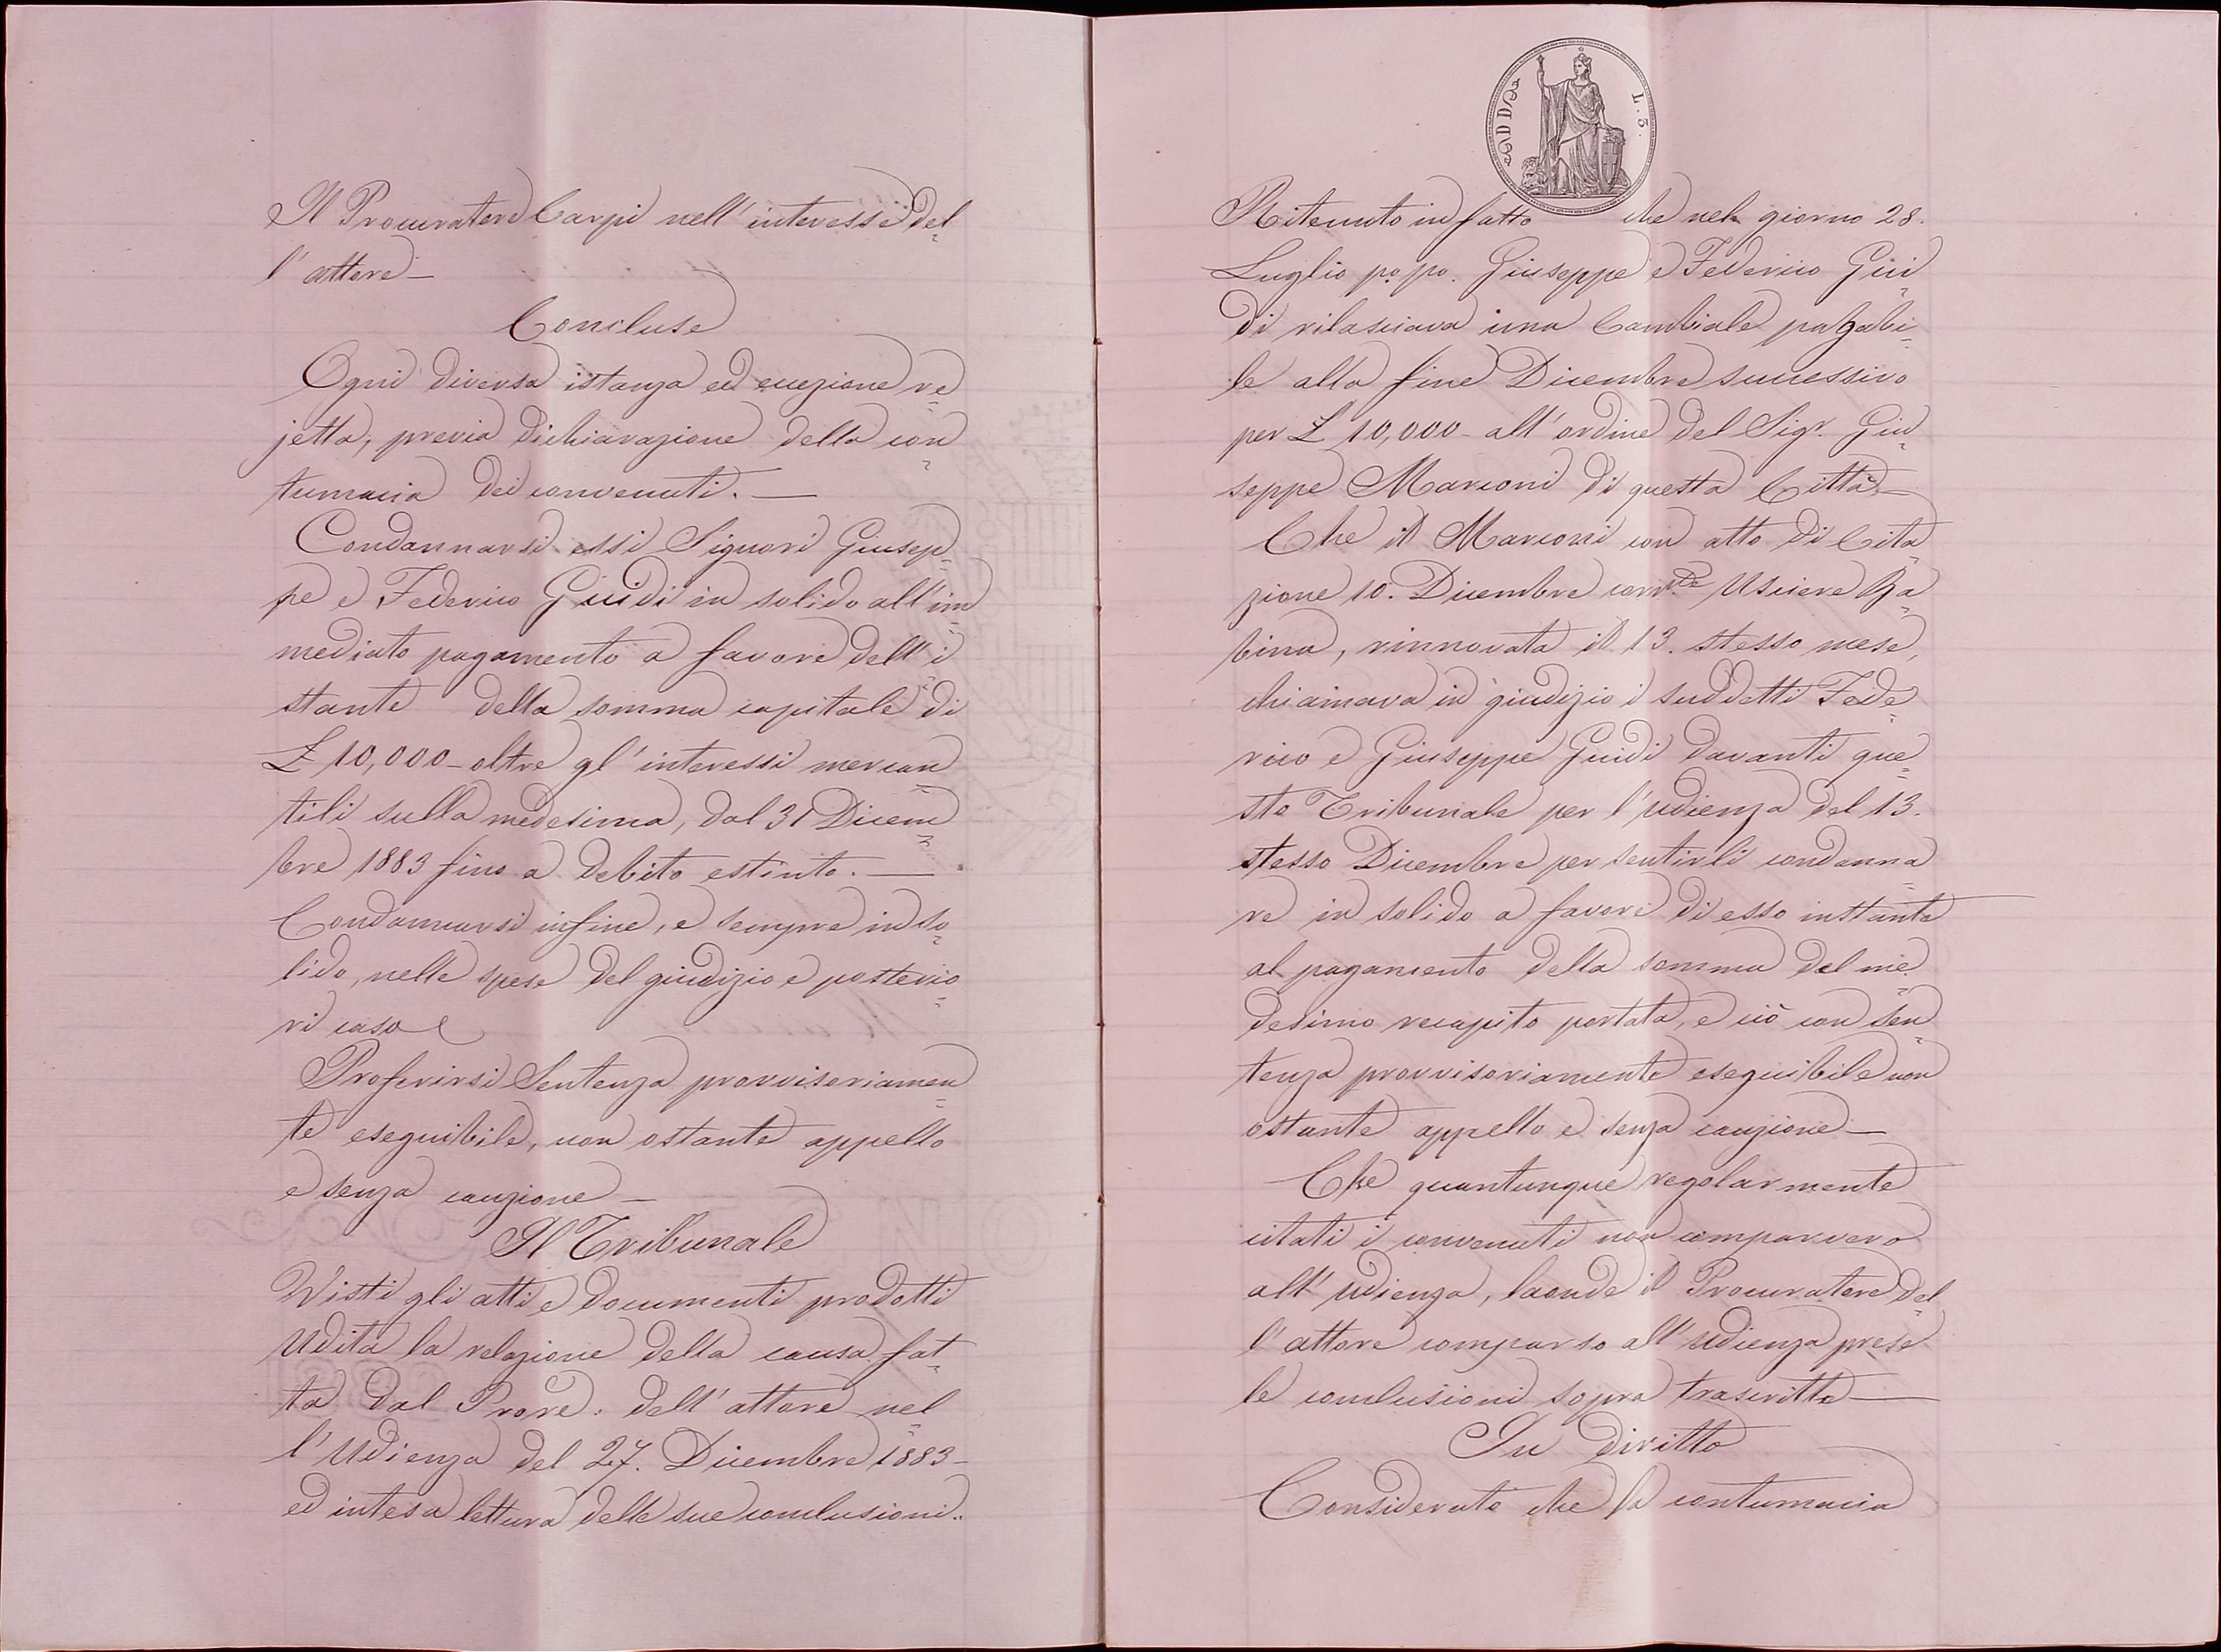 Il Procuratore Carpi nell'interesse del=
l'attore—
Concluse
Ogni diversa istanza ed eccezione re=
jetta, previa dichiarazione della con=
tumacia dei convenuti.—
Condannarsi essi Signori Giusep=
pe e Federico Guidi in solido all'im=
mediato pagamento a favore dell'i=
stante della somma capitale di
£ 10,000- oltre gl'interessi mercan=
tili sulla medesima, dal 31 Dicem=
bre 1883 fino a debito estinto.—
Condannarsi infine, e sempre in so=
lido, nelle spese del giudizio e posterio=
ri caso
Proferirsi Sentenza provvisoriamen=
te eseguibile, non ostante appello
e senza cauzione—
Il Tribunale
Visti gli atti e documenti prodotti
Udita la relazione della causa fat=
ta dal Prore. dell'attore nel=
l'Udienza del 27. Dicembre 1883-
ed intesa lettura delle sue conclusioni.
L. 5.
Ritenuto in fatto che nel giorno 28.
Luglio po. po. Giuseppe e Federico Gui=
di rilasciava una Cambiale pagabi=
le alla fine Dicembre successivo
per £ 10,000- all'ordine del Sigr. Giu=
seppe Marconi di questa Città—
Che il Marconi con atto di Cita=
zione 10. Dicembre corrte Usciere
bina, rinnovata il 13. stesso mese,
chiamava in giudizio i suddetti Fede=
rico e Giuseppe Guidi davanti que=
sto Tribunale per l'udienza del 13.
stesso Dicembre per sentirli condanna=
re in solido a favore di esso instante
al pagamento della somma dal me=
desimo recapito portata, e ciò con Sen=
tenza provvisoriamente eseguibile non
ostante appello e senza cauzione—
Che quantunque regolarmente
citati i convenuti non comparvero
all'udienza, laonde il Procuratore del=
l'attore comparso all'udienza prese
le conclusioni sopra trascritte—
In diritto
Considerato che la contumacia